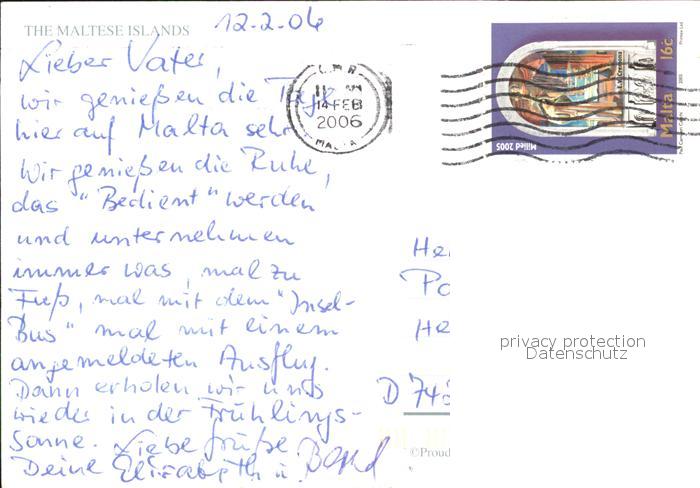 THE MALTESE ISLANDS
12.2.06
Lieber Vater,
wir genießen die Tage
hier auf Malta sehr
Wir genießen die Ruhe,
das "Bedient" werden
und unternehmen
immer was, mal zu
Fuß, mal mit dem "Insel-
Bus" mal mit einem
angemeldeten Ausflug.
Dann erholen wir uns
wieder in der Frühlings-
sonne. Liebe Grüße
Deine Elisabeth u. Bernd
14 FEB
2006
MALTA
Malta 16c
Milied 2005
2005
Printex Ltd
He
Po
He
D 74
privacy protection
Datenschutz
©Proud